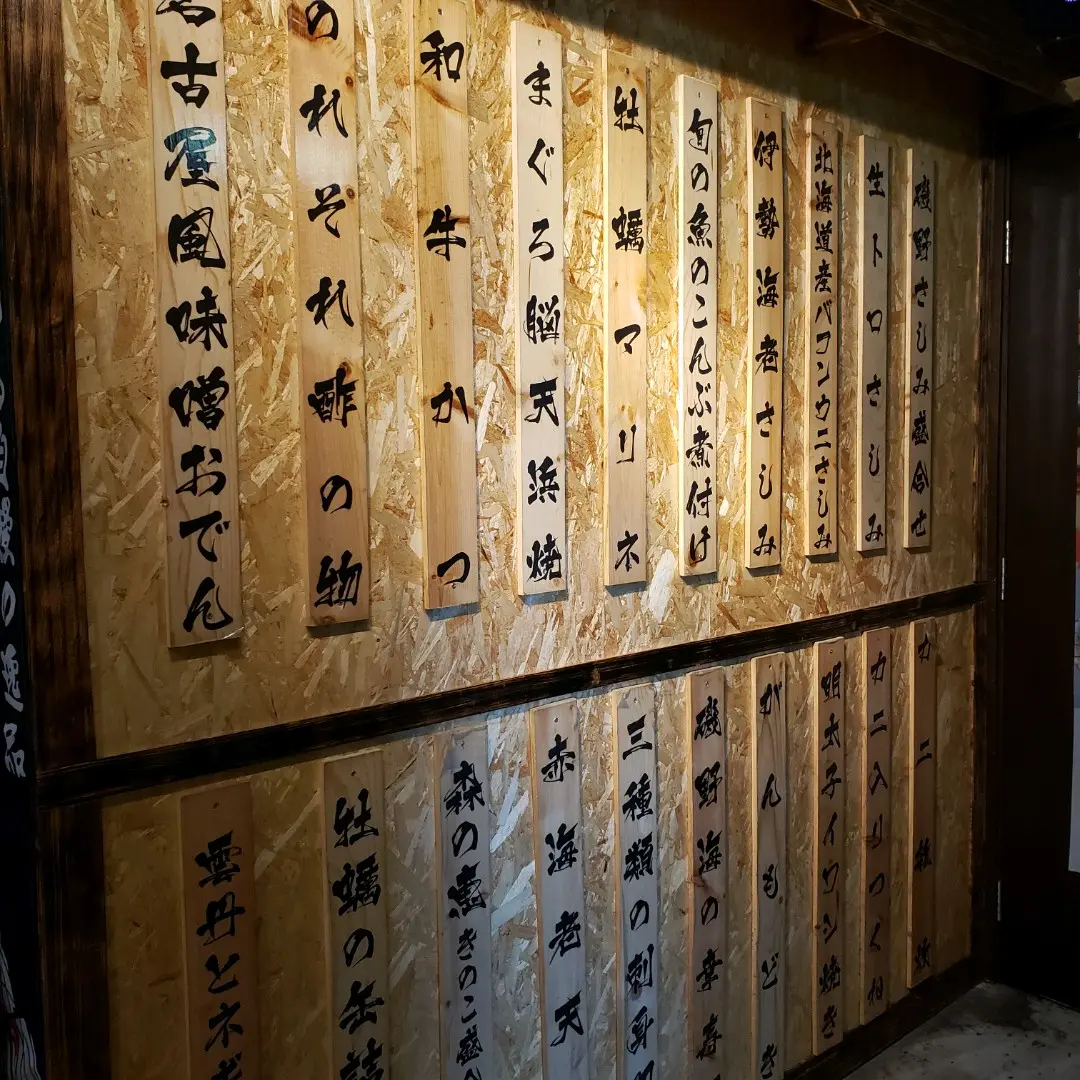 磯野さしみ盛合せ
生トロさしみ
北海道産バフンウニさしみ
伊勢海老さしみ
旬の魚のこんぶ煮付け
牡蠣マリネ
まぐろ脳天浜焼
和牛かつ
のれそれ酢の物
古屋風味噌おでん
カニ
カニ入りつく
明太子イワシ焼き
がんもどき
磯野海の幸
三種類の刺身
赤海老天
森の恵きのこ盛
牡蠣の缶詰
雲丹とネギ
の逸品